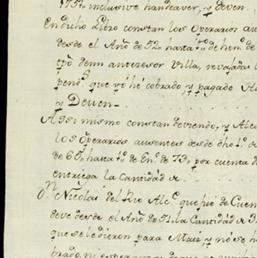 1751, inclusive han deaver, y deven
En dicho Libro constan los Operarios au
desde el Año de 52, hasta 1º de hen.º de
tpō demi antecesor Villa, revajadas l
pend.s que yo hé cobrado, y pagado Al
y Deven
Assi mismo constan deviendo, y Alca
los Operarios ausentes desde dho 1.º
de 60, hasta 1.º de En.º de 73, por cuenta d
entriega la Cantidad
D.n Nicolas del Rio Alc.e que fué de Cuen
deve desde el Año de 71 la Cantidad
que se le dieron para Maiz, y no se h